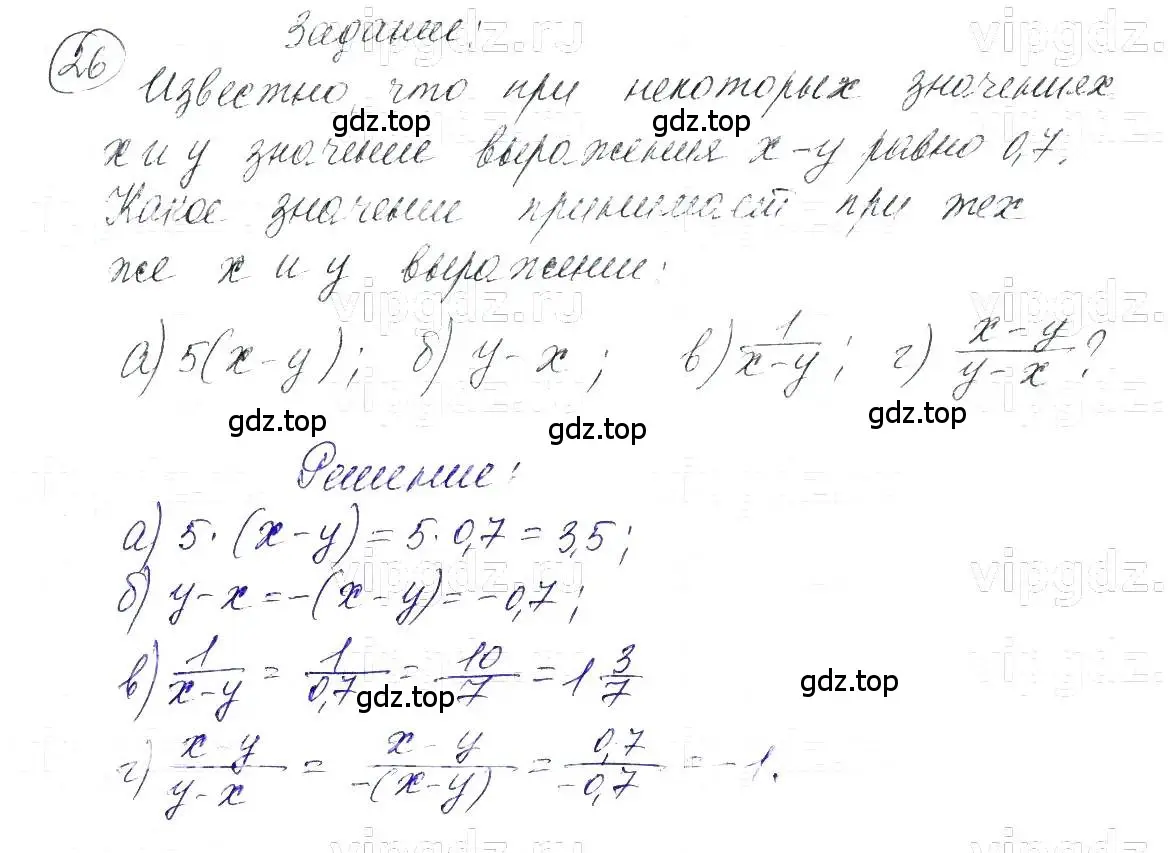 Задание:
26
Известно, что при некоторых значениях
x и y значение выражения x-y равно 0,7.
Какое значение принимает при тех
же x и y выражение:
а) 5(x-y); б) y-x; в) 1/(x-y); г) (x-y)/(y-x)?
Решение:
а) 5·(x-y)=5·0,7=3,5;
б) y-x=-(x-y)=-0,7;
в) 1/(x-y) = 1/0,7 = 10/7 = 1 3/7
г) (x-y)/(y-x) = (x-y)/(-(x-y)) = 0,7/(-0,7) = -1.
gdz.top
gdz.top
gdz.top
gdz.top
gdz.top
gdz.top
gdz.top
vipgdz.ru
vipgdz.
vipgdz.ru
vipgdz.
vipgdz.ru
vipgdz.
vipgdz.ru
vipgdz.